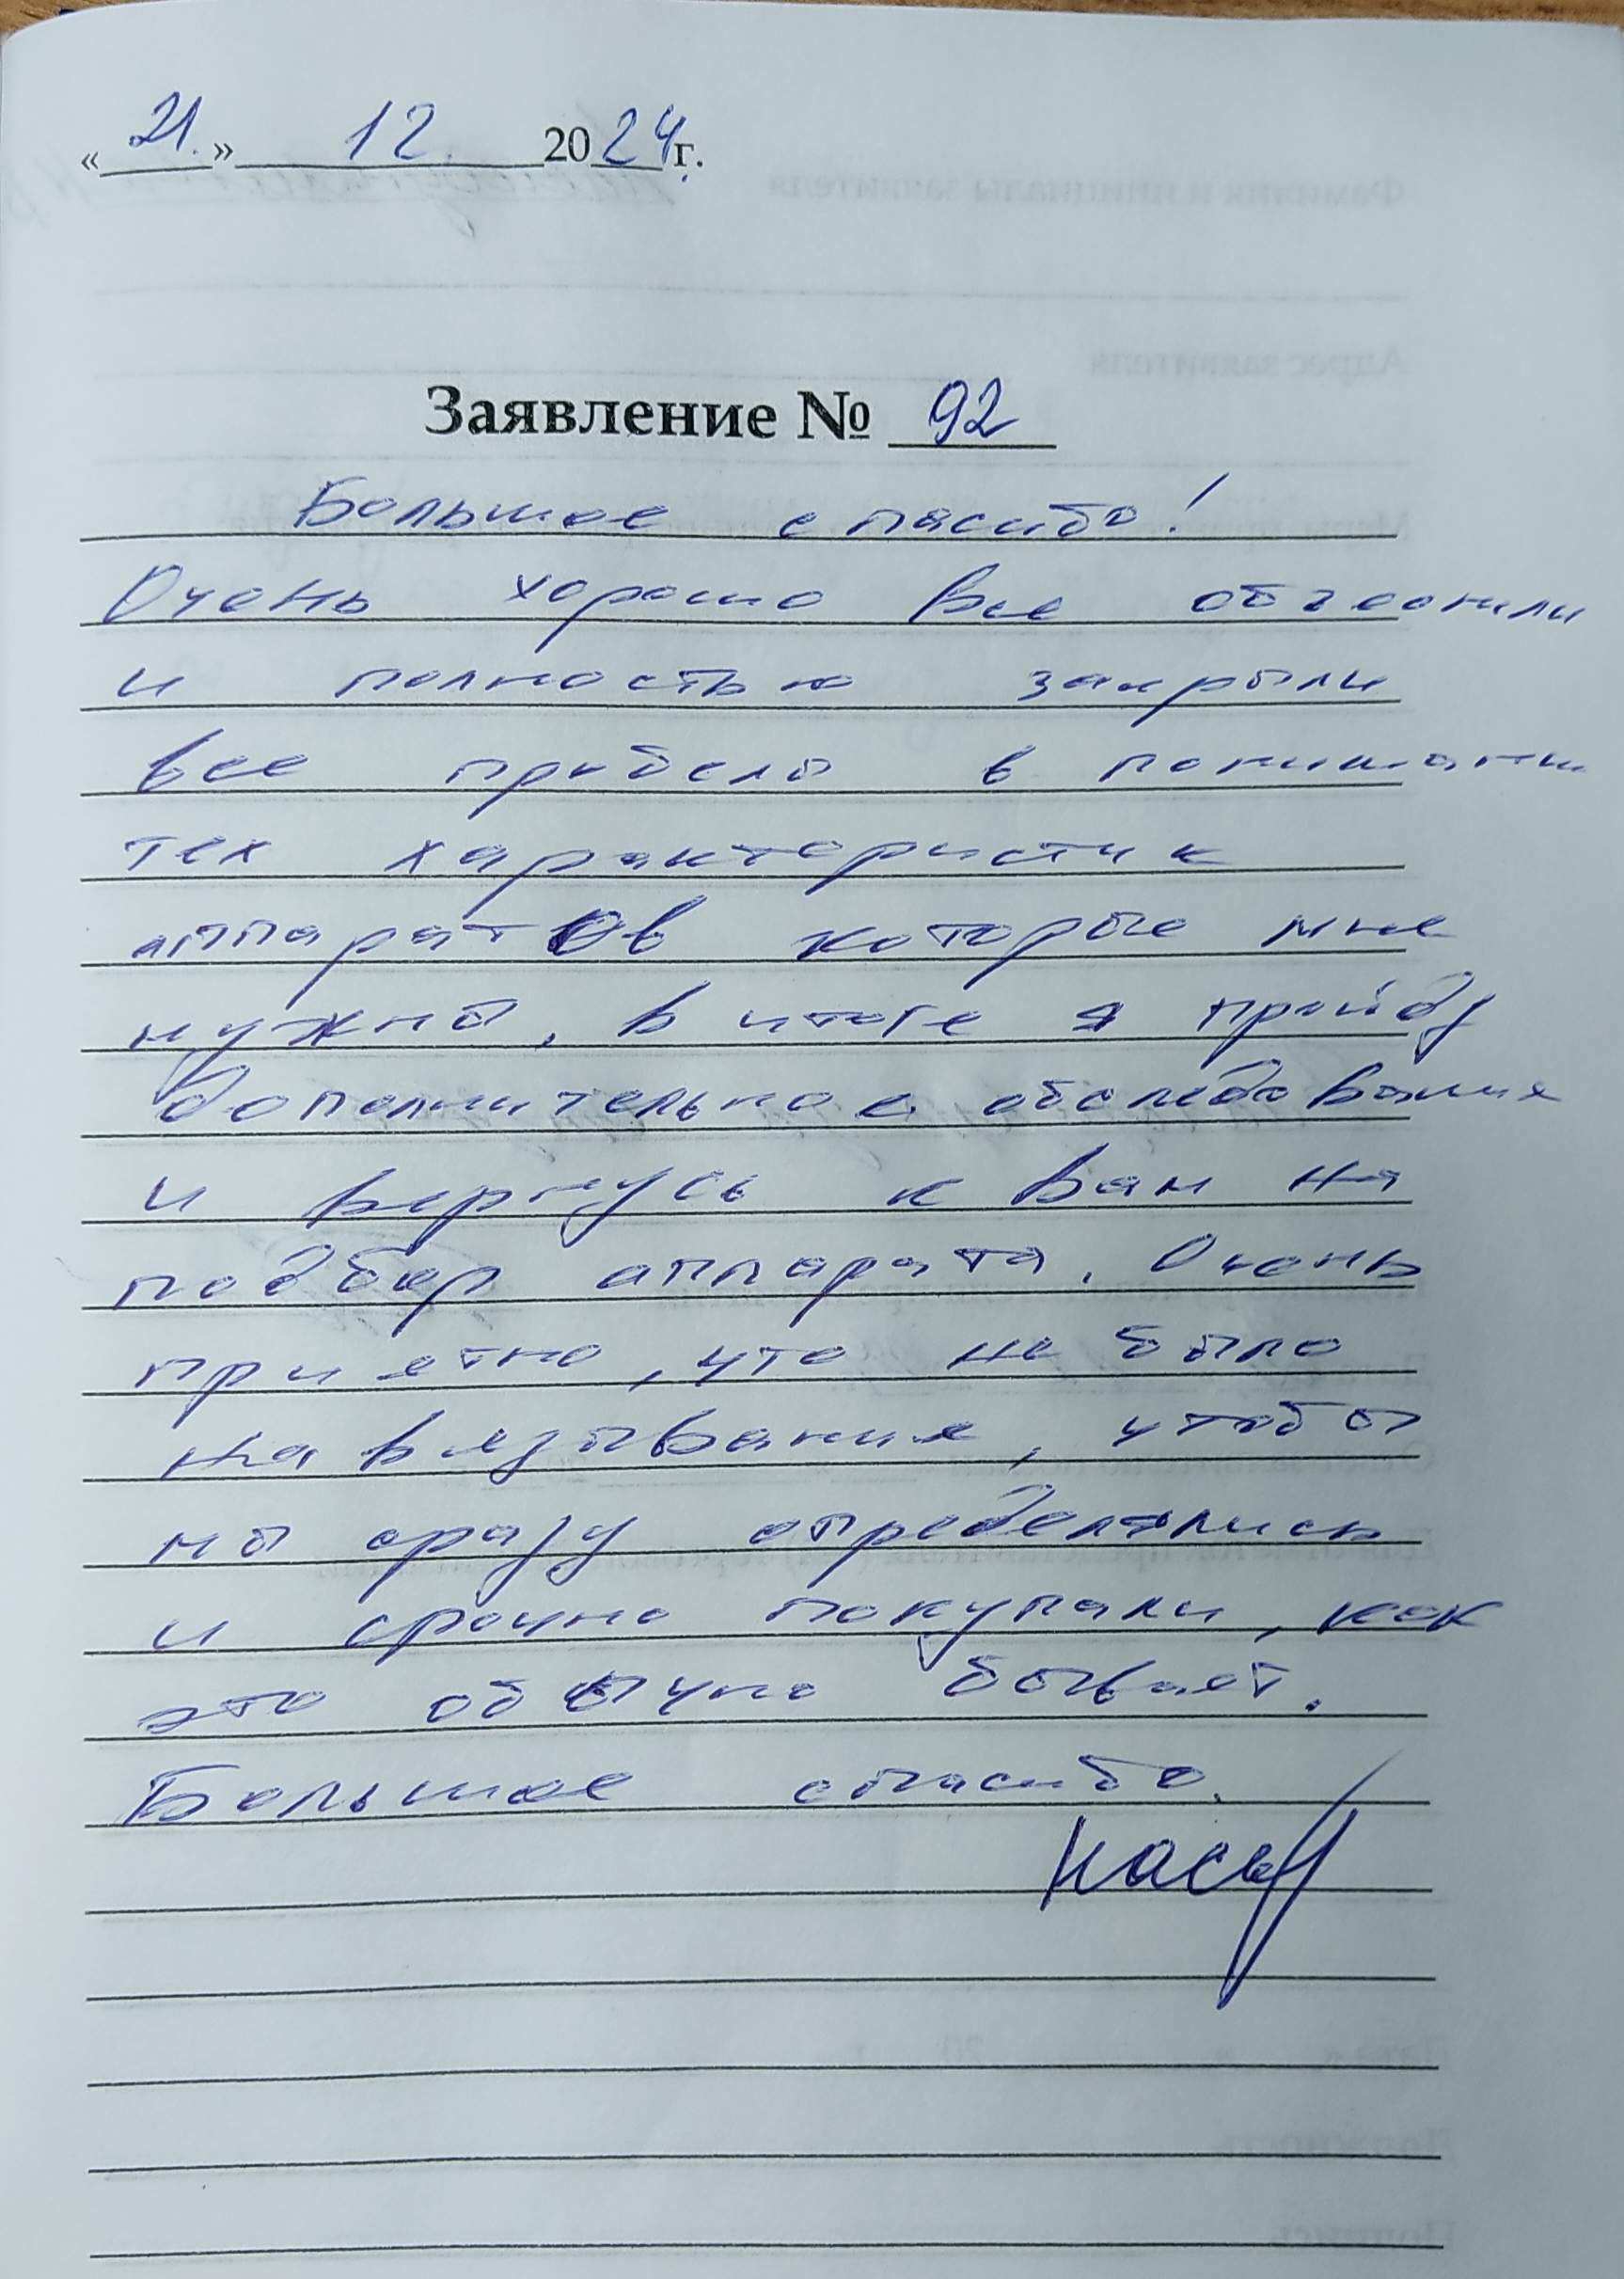 «21.» 12. 2024 г.
Заявление № 92
Большое спасибо!
Очень хорошо все объеснили
и полностью закрыли
все пробелы в понимании
тех характеристик
аппаратов которые мне
нужны, в итоге я пройду
дополнительное обследование
и вернусь к Вам на
подбор аппарата. Очень
приетно, что не было
навязывания, чтобы
мы сразу определялись
и срочно покупали, как
это обычно бывает.
Большое спасибо.